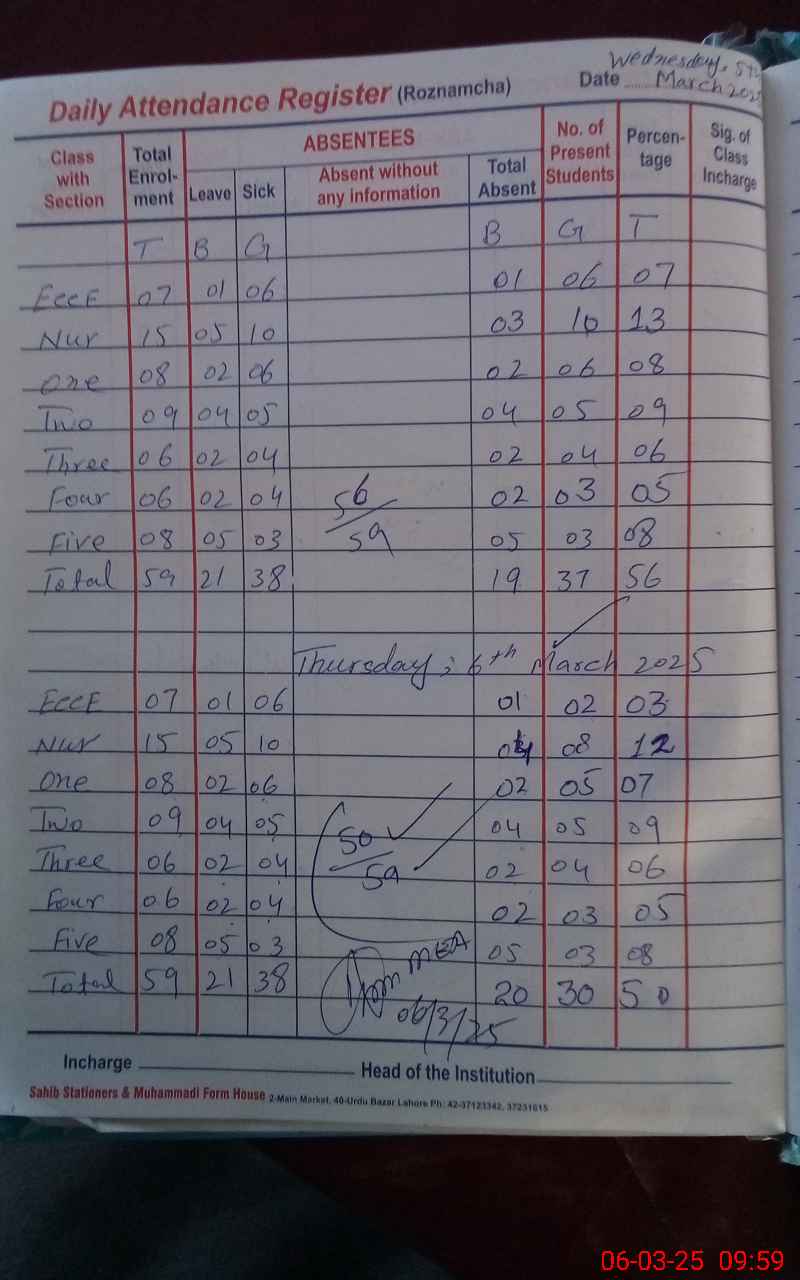 Wednesday, 5th
Daily Attendance Register (Roznamcha) Date March 2025
Class with Section Total Enrol-ment ABSENTEES Leave Sick Absent without any information Total Absent No. of Present Students Percen-tage Sig. of Class Incharge
T B G B G T
EccE 07 01 06 01 06 07
Nur 15 05 10 03 10 13
One 08 02 06 02 06 08
Two 09 04 05 04 05 09
Three 06 02 04 02 04 06
Four 06 02 04 56 02 03 05
Five 08 05 03 59 05 03 08
Total 59 21 38 19 37 56
Thursday, 6th March 2025
EccE 07 01 06 01 02 03
Nur 15 05 10 04 08 12
One 08 02 06 02 05 07
Two 09 04 05 50 04 05 09
Three 06 02 04 59 02 04 06
Four 06 02 04 02 03 05
Five 08 05 03 MEA 05 03 08
Total 59 21 38 20 30 50
06/3/25
Incharge Head of the Institution
Sahib Stationers & Muhammadi Form House 2-Main Market, 40-Urdu Bazar Lahore Ph: 42-37123342, 37231615
06-03-25 09:59